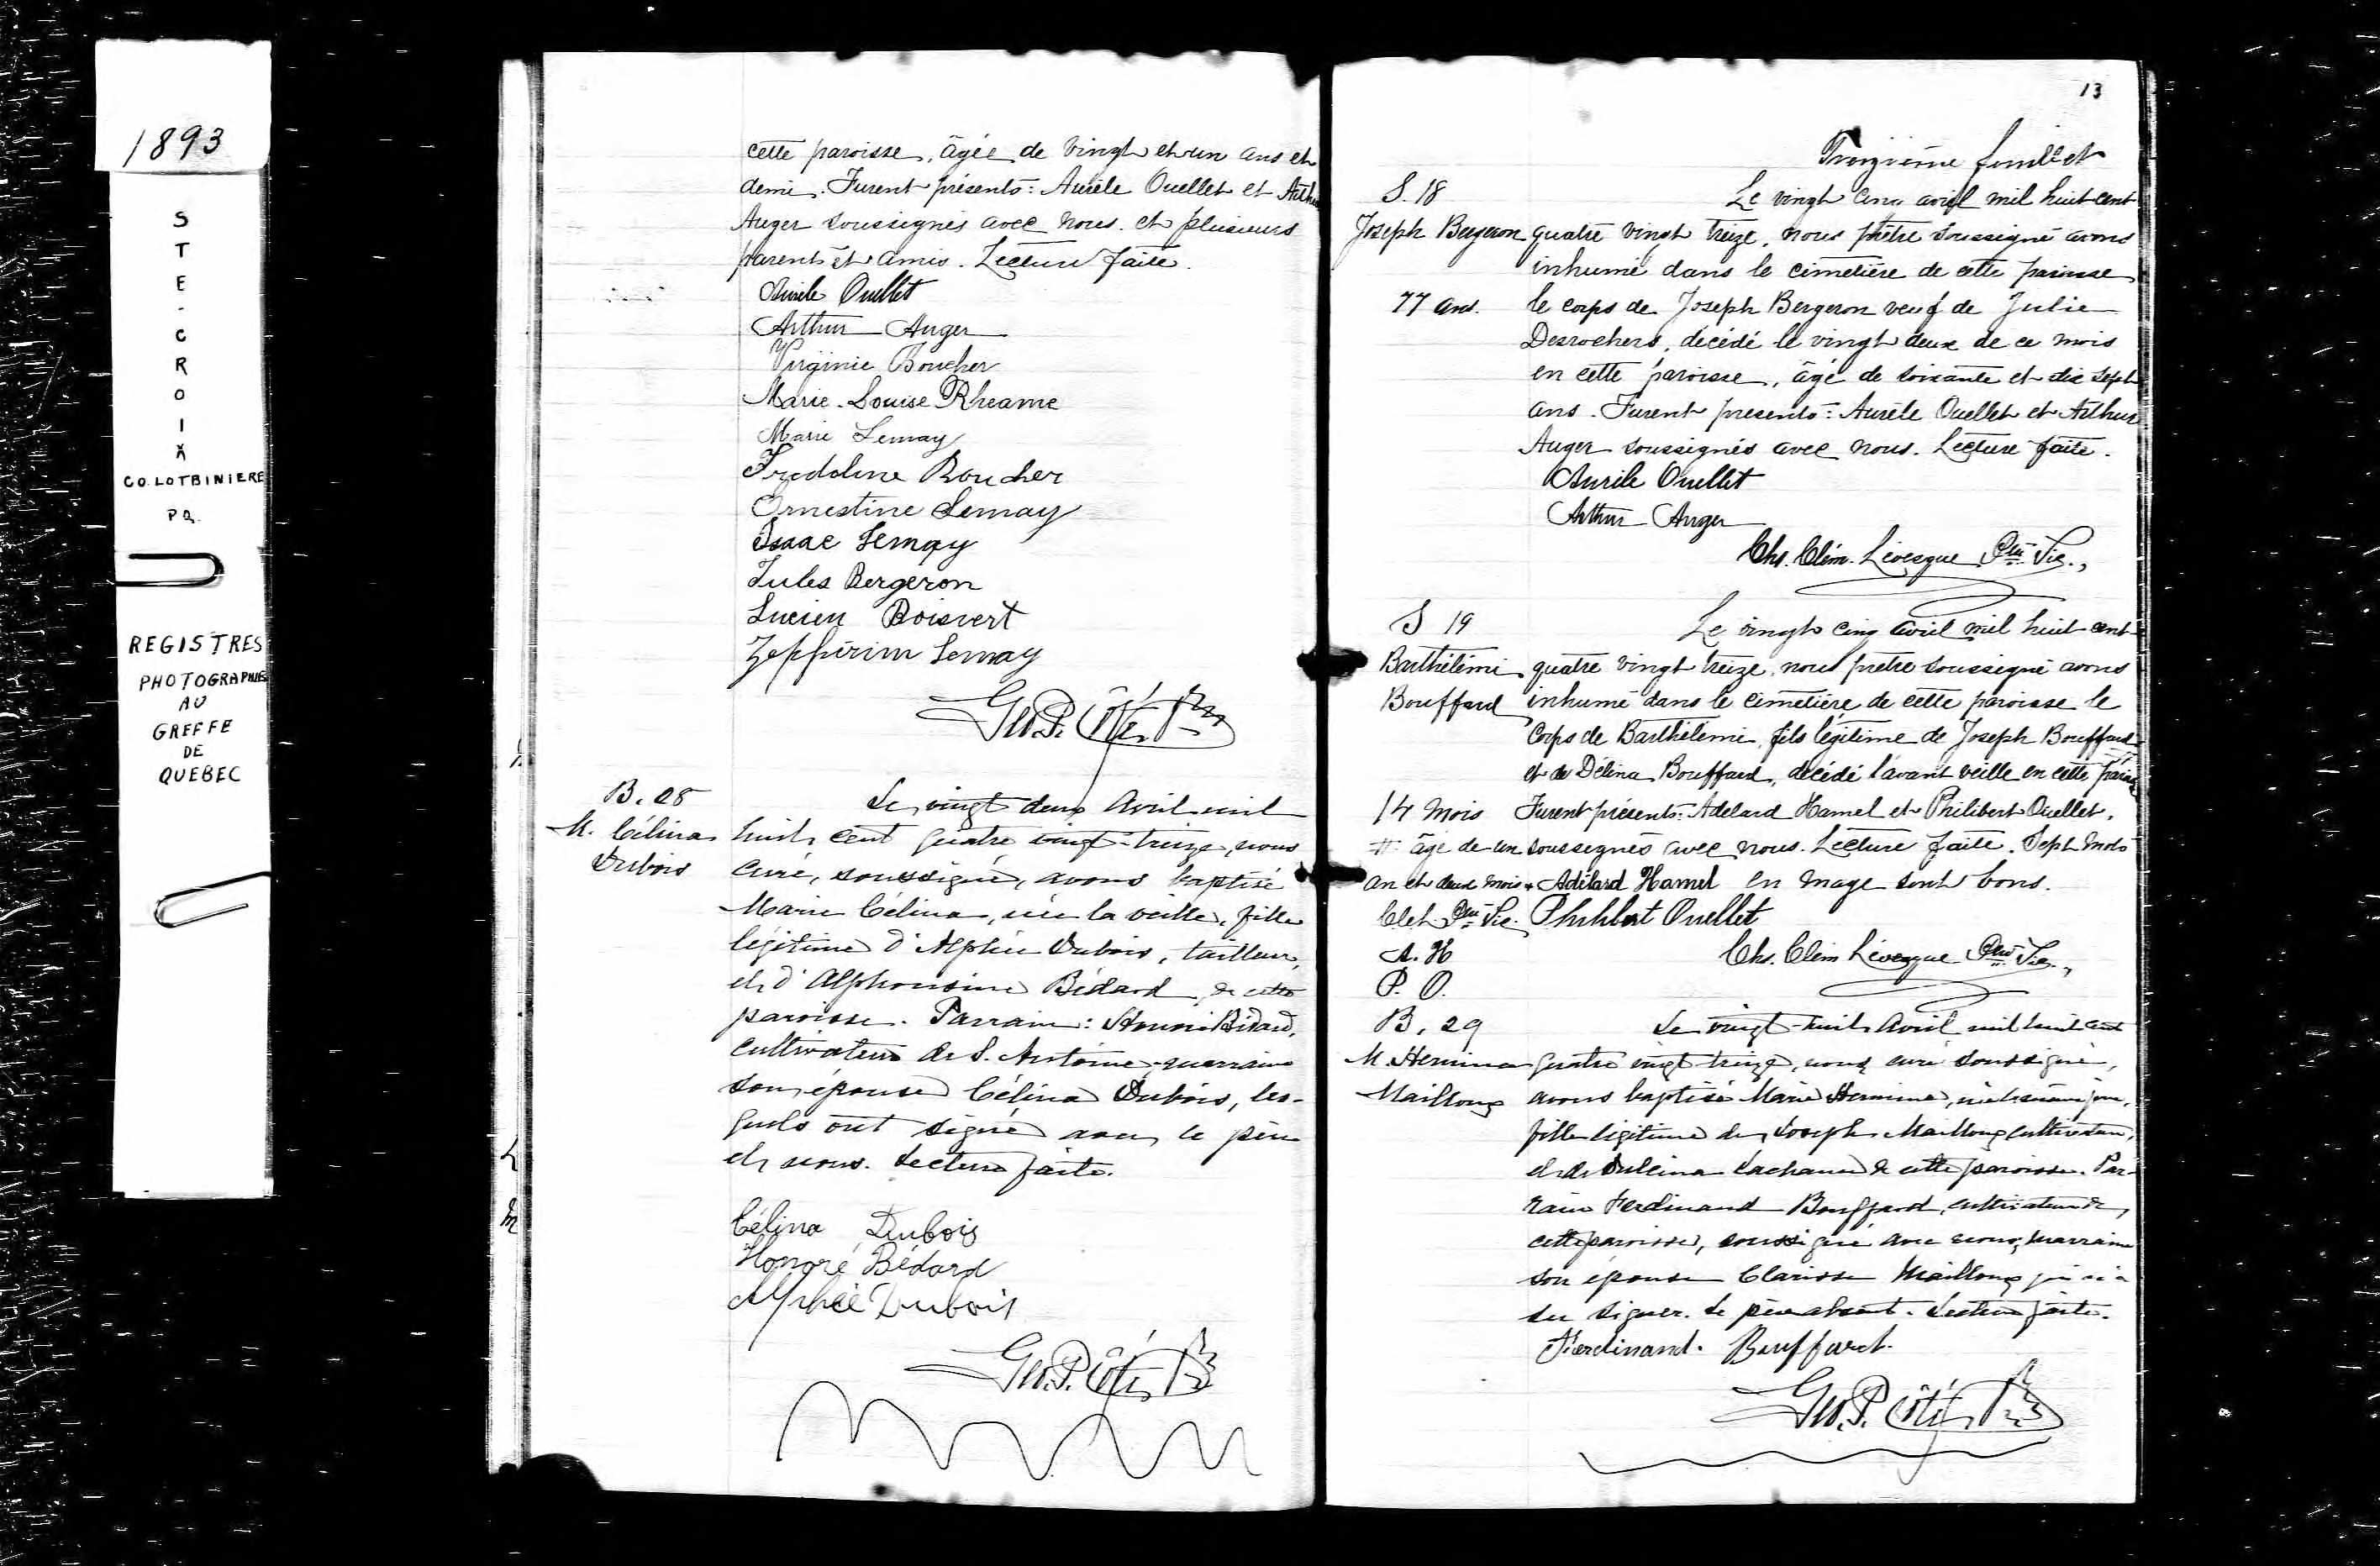 1893
S
T
E
-
C
R
O
I
X
CO. LOTBINIERE
P Q.
REGISTRES
PHOTOGRAPHIES
AU
GREFFE
DE
QUEBEC
cette paroisse, âgée de vingt et un ans et
demi. Furent présents: Aurèle Ouellet et Arthur
Auger soussignés avec nous. et plusieurs
parents et amis. Lecture faite.
Aurèle Ouellet
Arthur Auger
Virginie Boucher
Marie-Louise Rheame
Marie Lemay
Fredoline Boucher
Ernestine Lemay
Isaac Lemay
Jules Bergeron
Lucien Boisvert
Zepfirim Lemay
Geo. P. Côté, Ptre
B. 28
M. Célina
Dubois
Le vingt deux Avril mil
huit cent quatre vingt-treize, nous
curé, soussigné, avons baptisé
Marie Célina, née la veille, fille
légitime d'Alphée Dubois, tailleur,
et d'Alphonsine Bédard, de cette
paroisse. Parrain: Honoré Bédard,
cultivateur de S. Antoine marraine
son épouse Célina Dubois, les-
quels ont signé avec le père
et nous. Lecture faite.
Célina Dubois
Honoré Bédard
Alphée Dubois
Geo. P. Côté, Ptre
13
Treizième feuillet
S. 18
Joseph Bergeron
77 ans.
Le vingt cinq avril mil huit cent
quatre vingt treize, nous prêtre soussigné avons
inhumé dans le cimetière de cette paroisse
le corps de Joseph Bergeron veuf de Julie
Desrochers, décédé le vingt deux de ce mois
en cette paroisse, âgé de soixante et dix sept
ans. Furent présents: Aurèle Ouellet et Arthur
Auger soussignés avec nous. Lecture faite.
Aurèle Ouellet
Arthur Auger
Chs. Clém. Lévesque Ptre Vic.,
S 19
Barthélémi
Bouffard
14 mois
# âgé de un
an et deux mois +
Clel Ptre Vic.
A. H
P. O.
Le vingt cinq avril mil huit cent
quatre vingt treize, nous prêtre soussigné avons
inhumé dans le cimetière de cette paroisse le
corps de Barthélémi, fils légitime de Joseph Bouffard
et de Délina Bouffard, décédé l'avant veille en cette paroisse
Furent présents: Adélard Hamel et Philibert Ouellet,
soussignés avec nous. Lecture faite. Sept mots
en marge sont bons.
Adélard Hamel
Philibert Ouellet
Chs. Clém Lévesque Ptre Vic.,
B. 29
M. Hermina
Mailloux
Le vingt-huit Avril mil huit cent
quatre vingt treize, nous curé soussigné,
avons baptisé Marie Hermine, née même jour,
fille légitime de Joseph Mailloux cultivateur,
et de Dulcina Lachance de cette paroisse. Par-
rain Ferdinand Bouffard, cultivateur de
cette paroisse, soussigné avec nous, marraine
son épouse Clarisse Mailloux qui n'a
su signer. Le père absent. Lecture faite.
Ferdinand. Bouffard.
Geo. P. Côté, Ptre